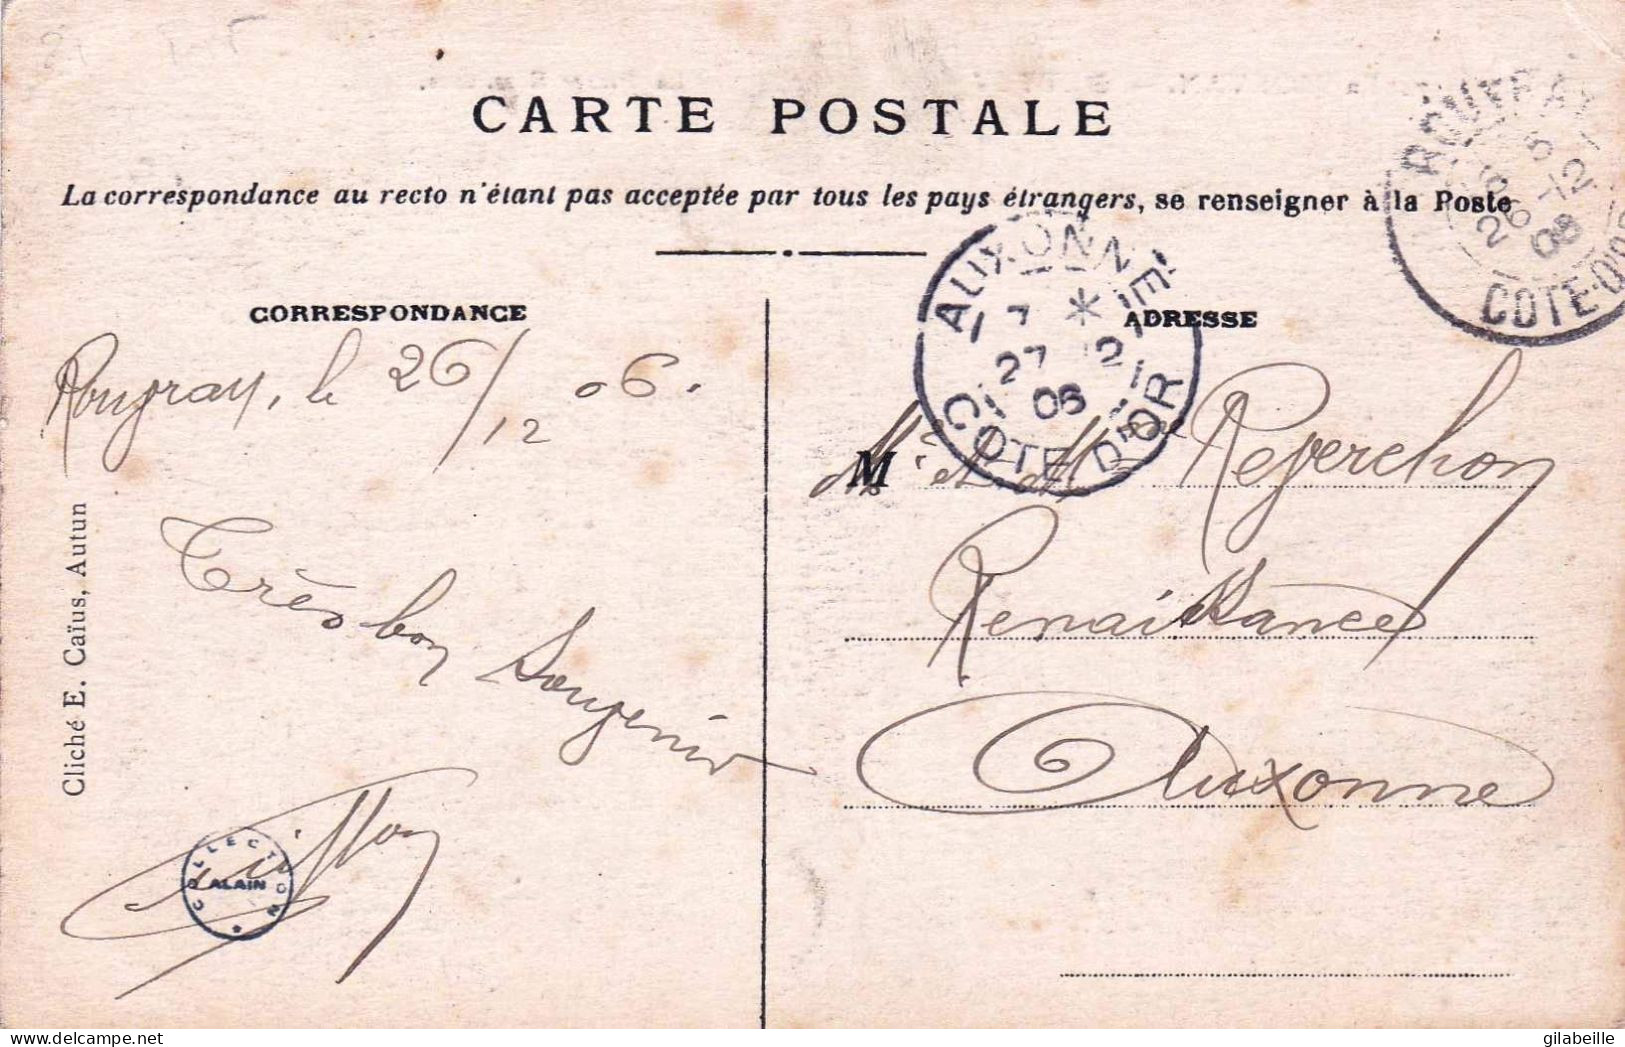 CARTE POSTALE
La correspondance au recto n'étant pas acceptée par tous les pays étrangers, se renseigner à la Poste
ROUVRAY
5
26 -12
06
COTE-D'OR
AUXONNE
7 *
27 12
06
COTE D'OR
CORRESPONDANCE
Rouvray, le 26/12 06.
Très bon
Souvenir
COLLECTION
ALAIN
Cliché E. Caïus, Autun
ADRESSE
M Reverchon
Renaissance
Auxonne
gilabeille